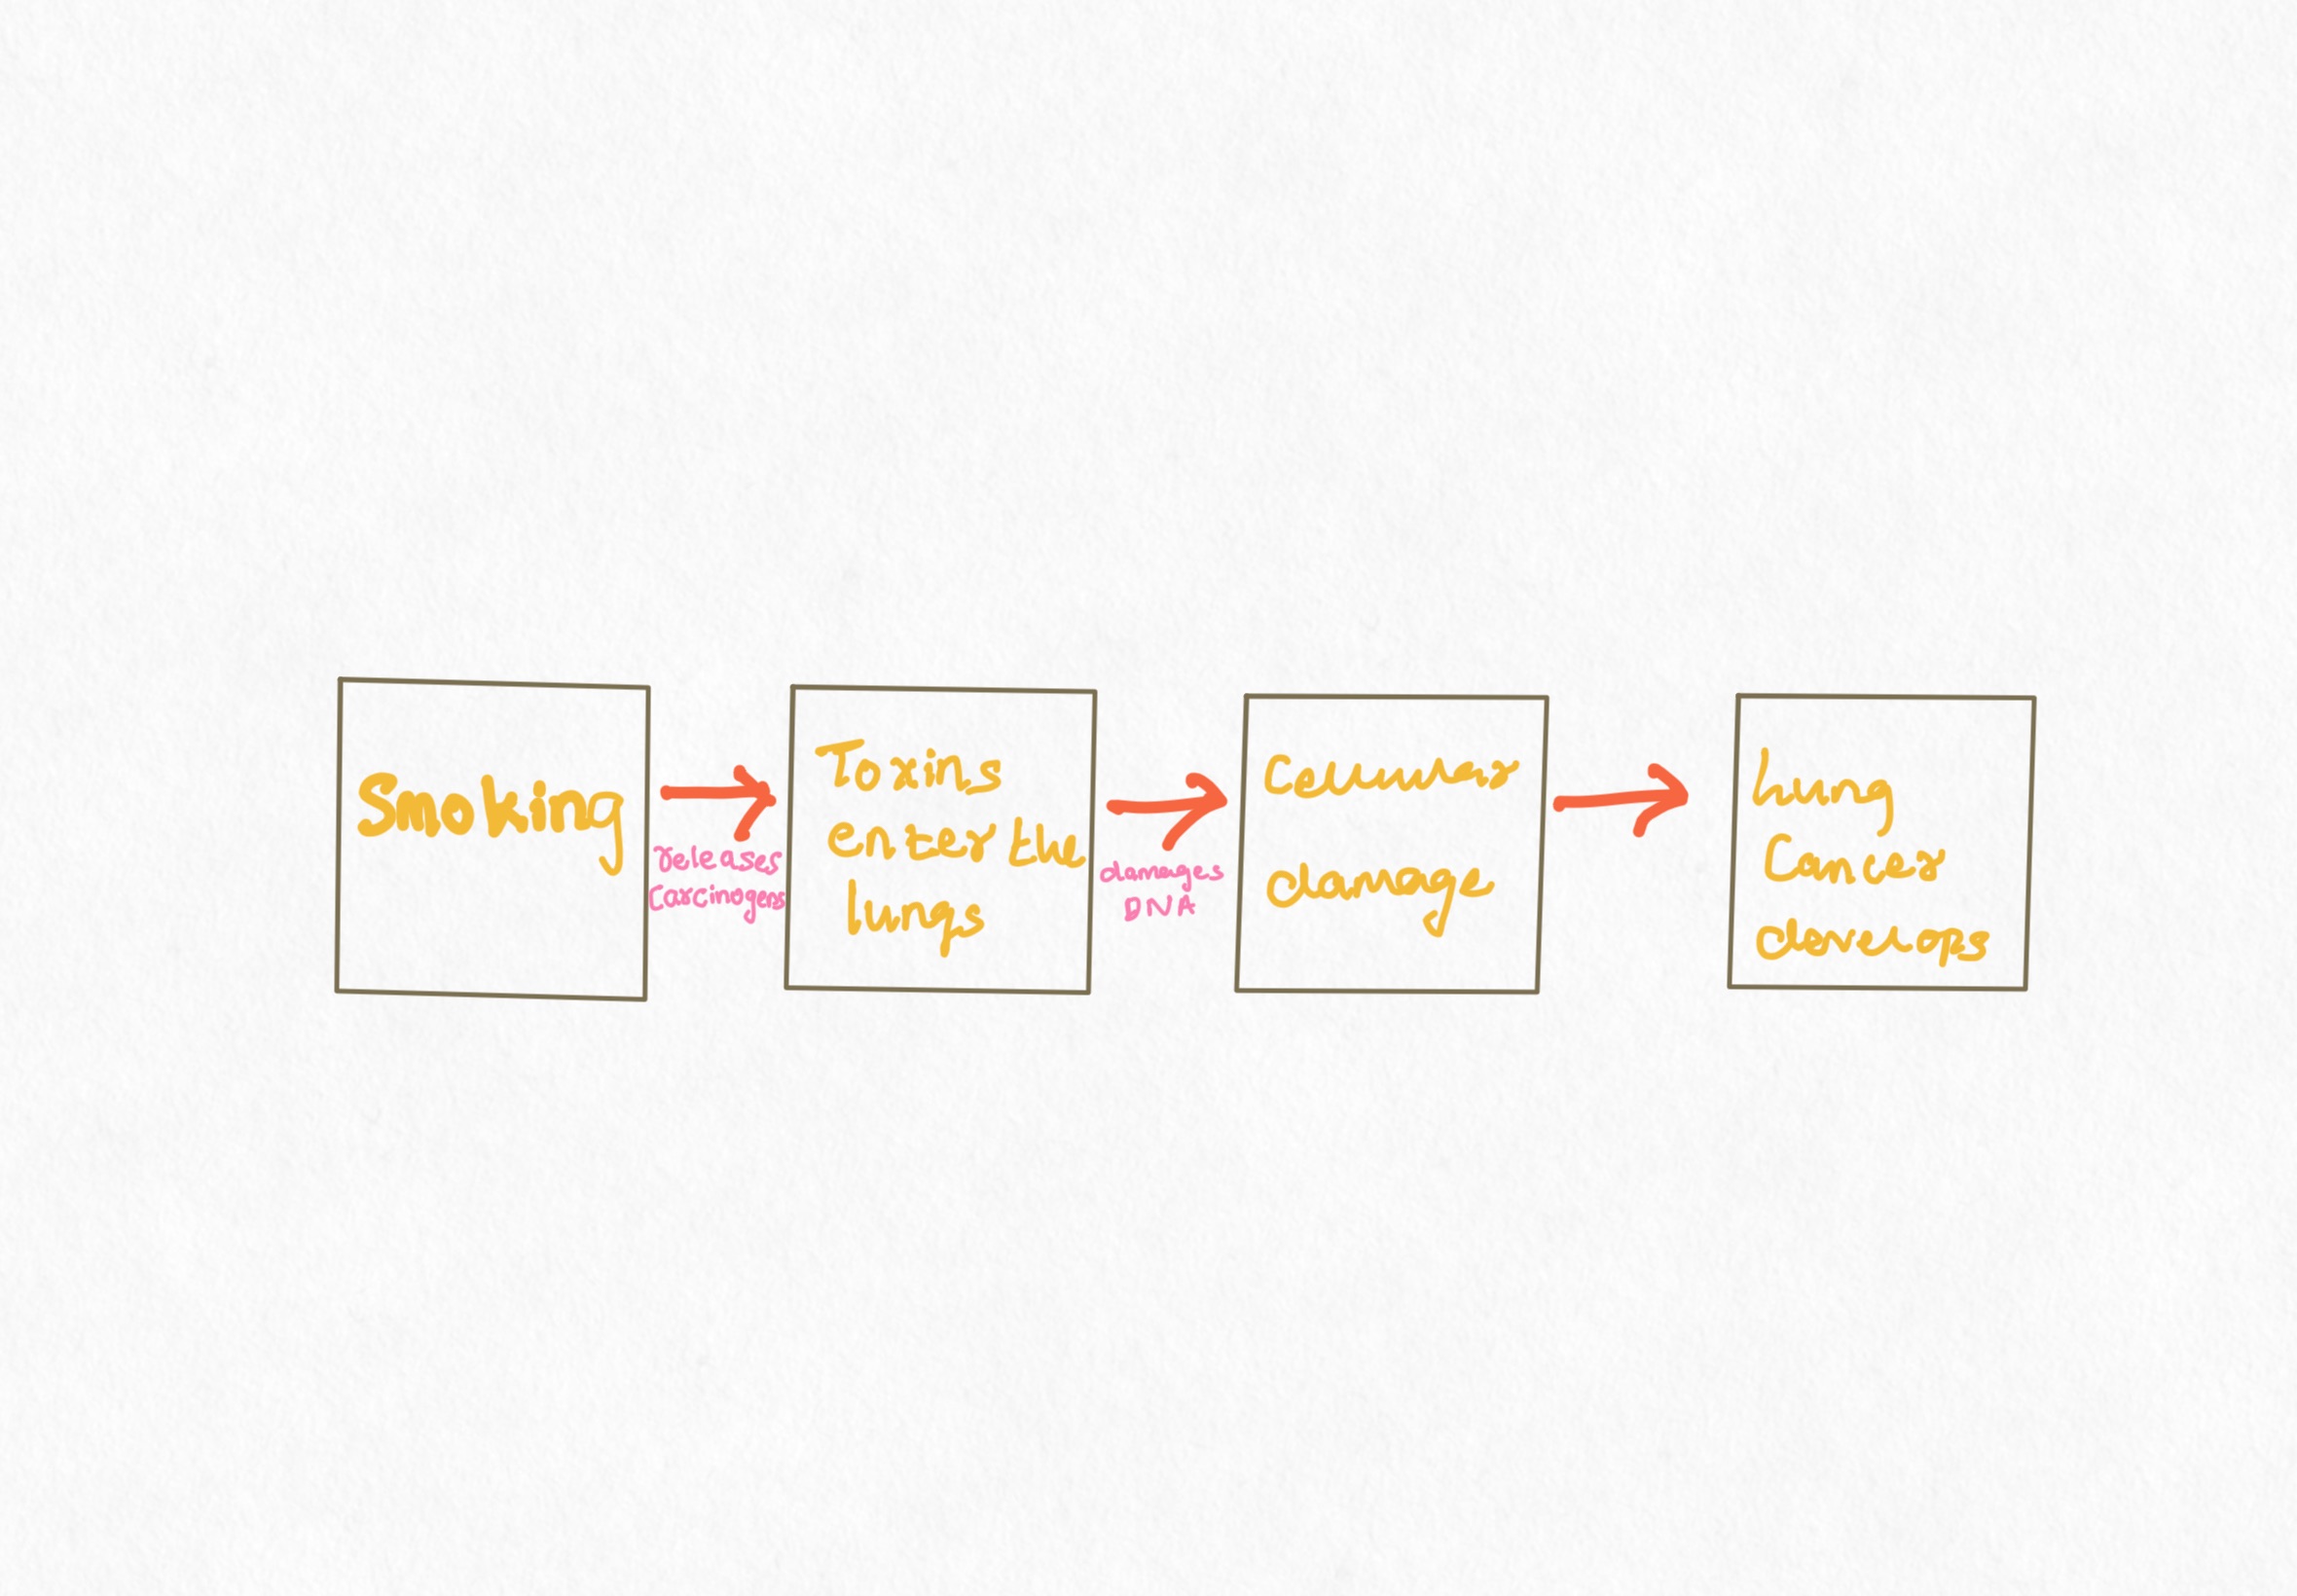 Smoking
releases
Carcinogens
Toxins
enter the
lungs
damages
DNA
Cellular
damage
Lung
Cancer
develops